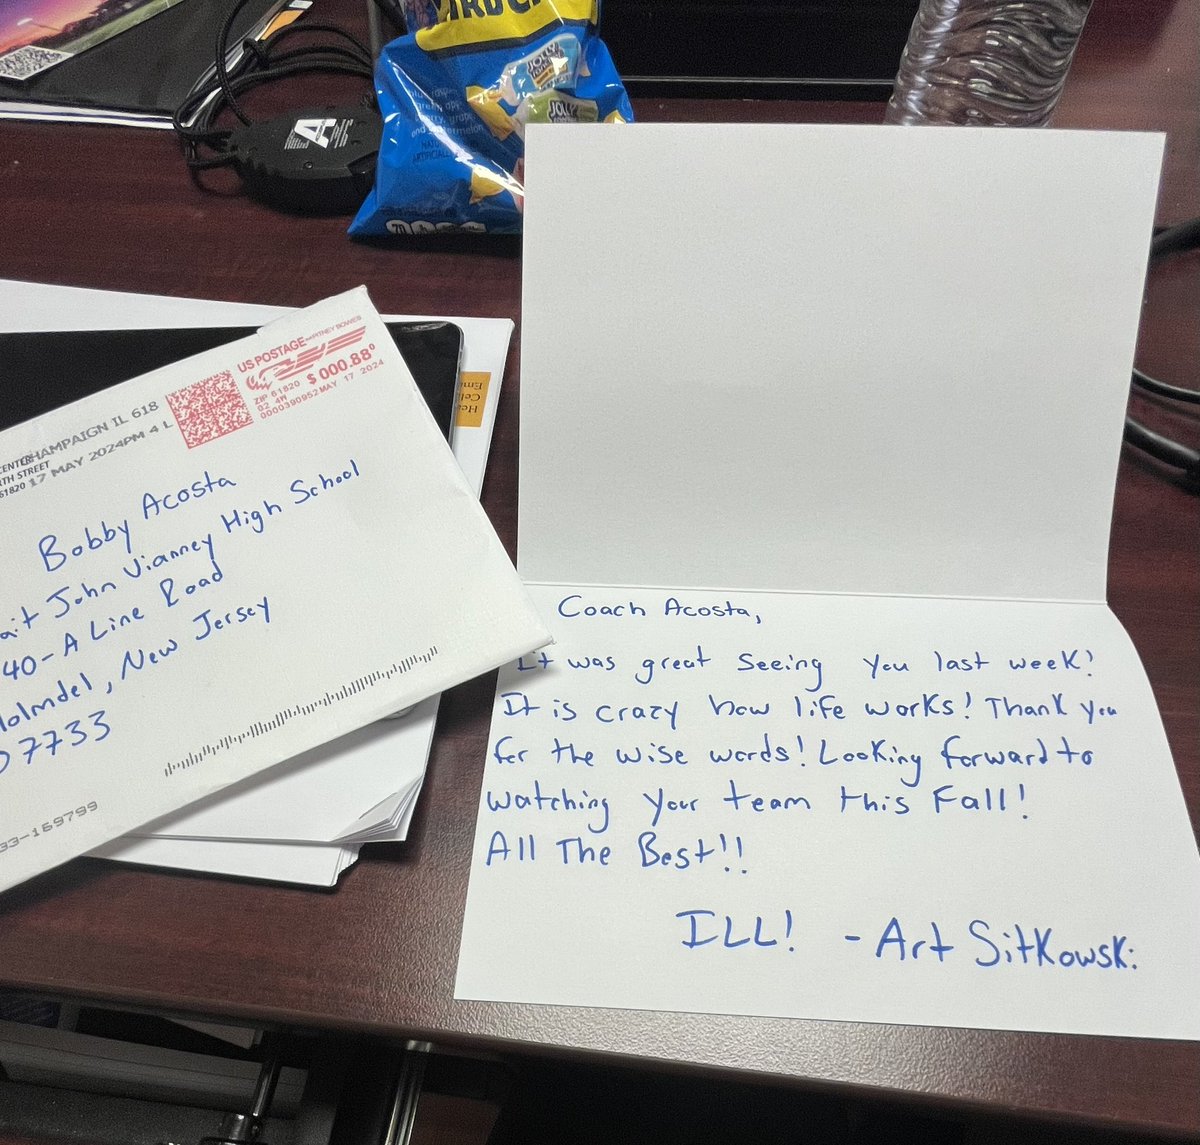 JOLLY
JOLLY
A
US POSTAGE PITNEY BOWES
$ 000.88⁰
ZIP 61820
02 4W
0000390952 MAY 17 2024
CHAMPAIGN IL 618
17 MAY 2024PM 4 L
CENTER
TH STREET
61820
Bobby Acosta
ait John Vianney High School
40-A Line Road
Holmdel, New Jersey
07733
33-169799
Coach Acosta,
It was great seeing you last week!
It is crazy how life works! Thank you
for the wise words! Looking forward to
watching your team this Fall!
All The Best!!
ILL! - Art Sitkowski